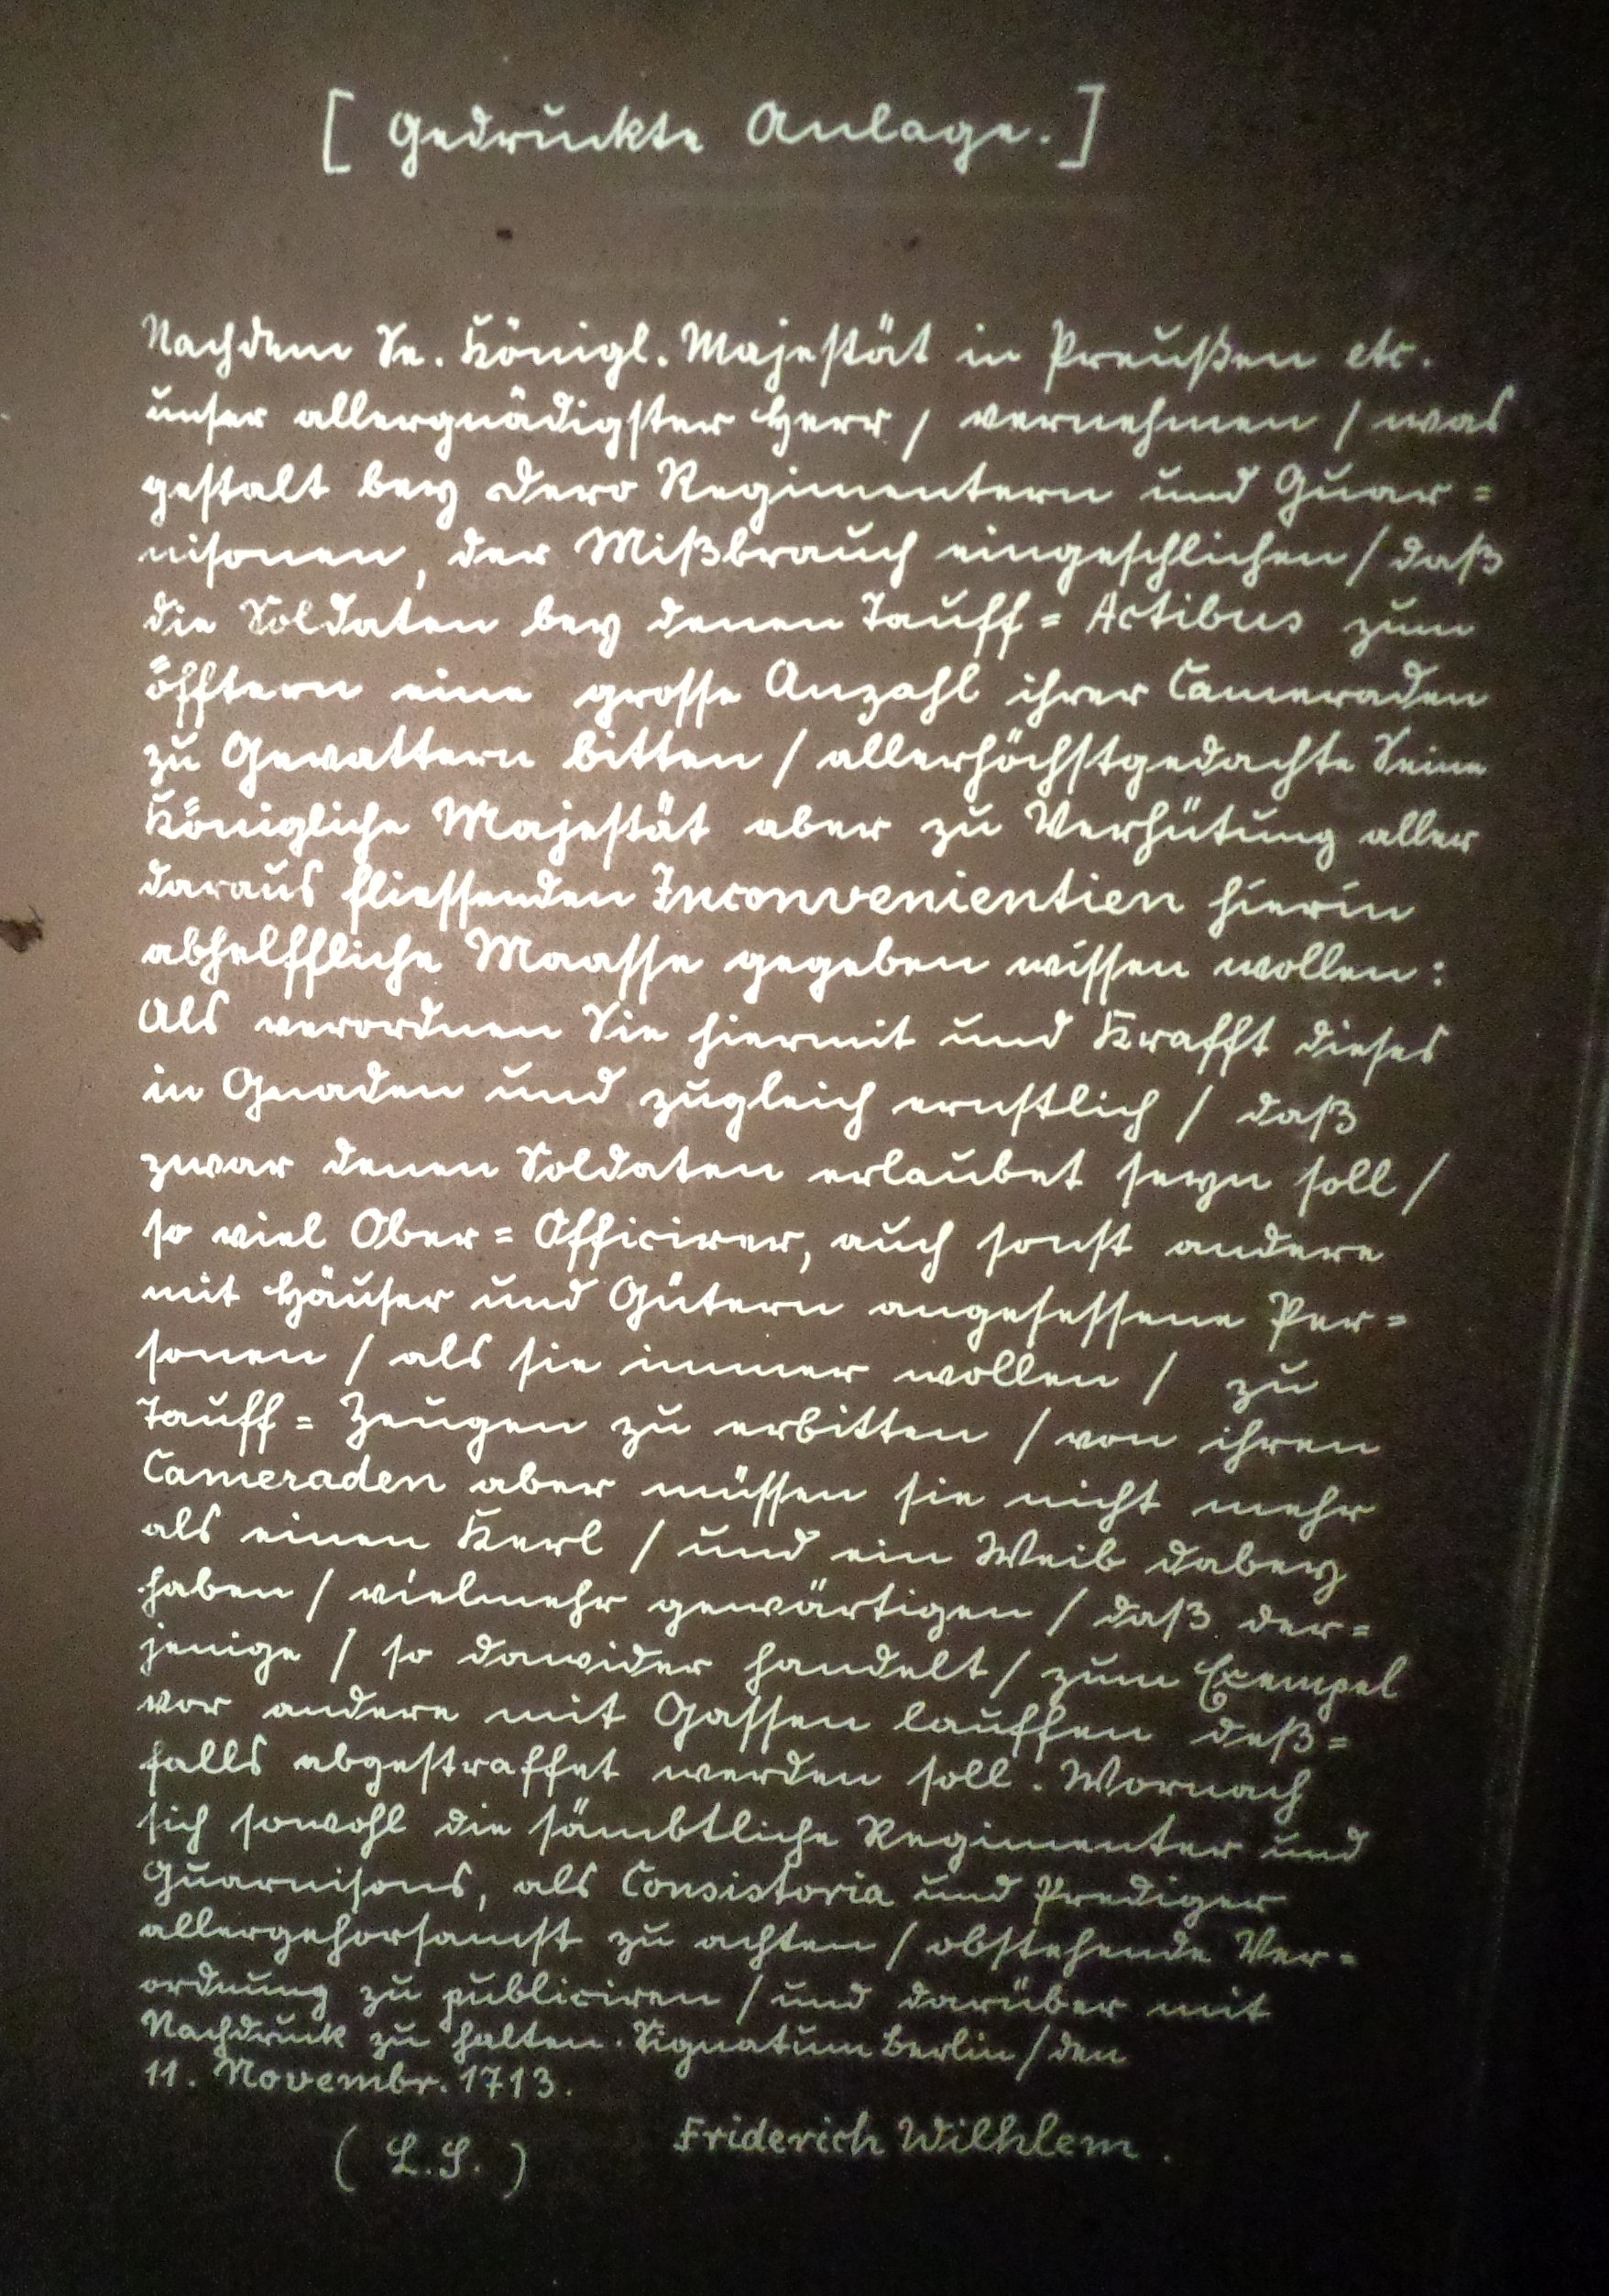 [ Gedruckte Anlage. ]
Nachdem Se. Königl. Majestät in Preußen etc.
unser allergnädigster Herr / vernehmen / was
gestalt bey Dero Regimentern und Guar=
nisonen, der Mißbrauch eingeschlichen / daß
die Soldaten bey denen Tauff= Actibus zum
öfftern eine grosse Anzahl ihrer Cameraden
zu Gevattern bitten / allerhöchstgedachte Seine
Königliche Majestät aber zu Verhütung aller
daraus fliessenden Inconvenientien hierin
abhelffliche Maasse gegeben wissen wollen:
Als verordnen Sie hiermit und Krafft dieses
in Gnaden und zugleich ernstlich / daß
zwar denen Soldaten erlaubet seyn soll /
so viel Ober= Officirer, auch sonst andere
mit Häuser und Gütern angesessene Per=
sonen / als sie immer wollen / zu
Tauff= Zeugen zu erbitten / von ihren
Cameraden aber müssen sie nicht mehr
als einen Kerl / und ein Weib dabey
haben / vielmehr gewärtigen / daß der=
jenige / so dawider handelt / zum Exempel
vor andere mit Gassen lauffen deß=
falls abgestraffet werden soll. Wornach
sich sowohl die sämbtliche Regimenter und
Guarnisons, als Consistoria und Prediger
allergehorsamst zu achten / obstehende Ver=
ordnung zu publiciren / und darüber mit
Nachdruck zu halten. Signatum Berlin / den
11. Novembr. 1713.
( L.S. ) Friderich Wilhlem.